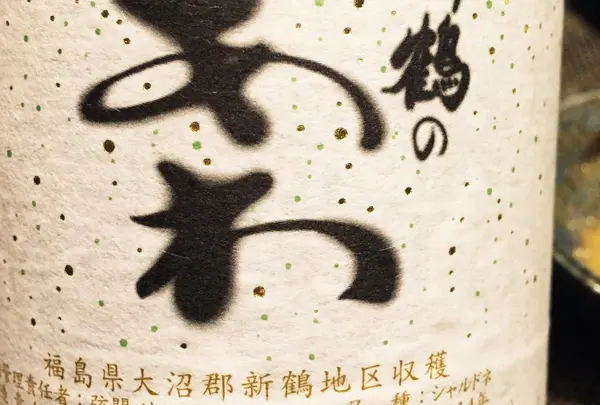 鶴の
あわ
福島県大沼郡新鶴地区収穫
管理責任者：弦間
種：シャルドネ
年